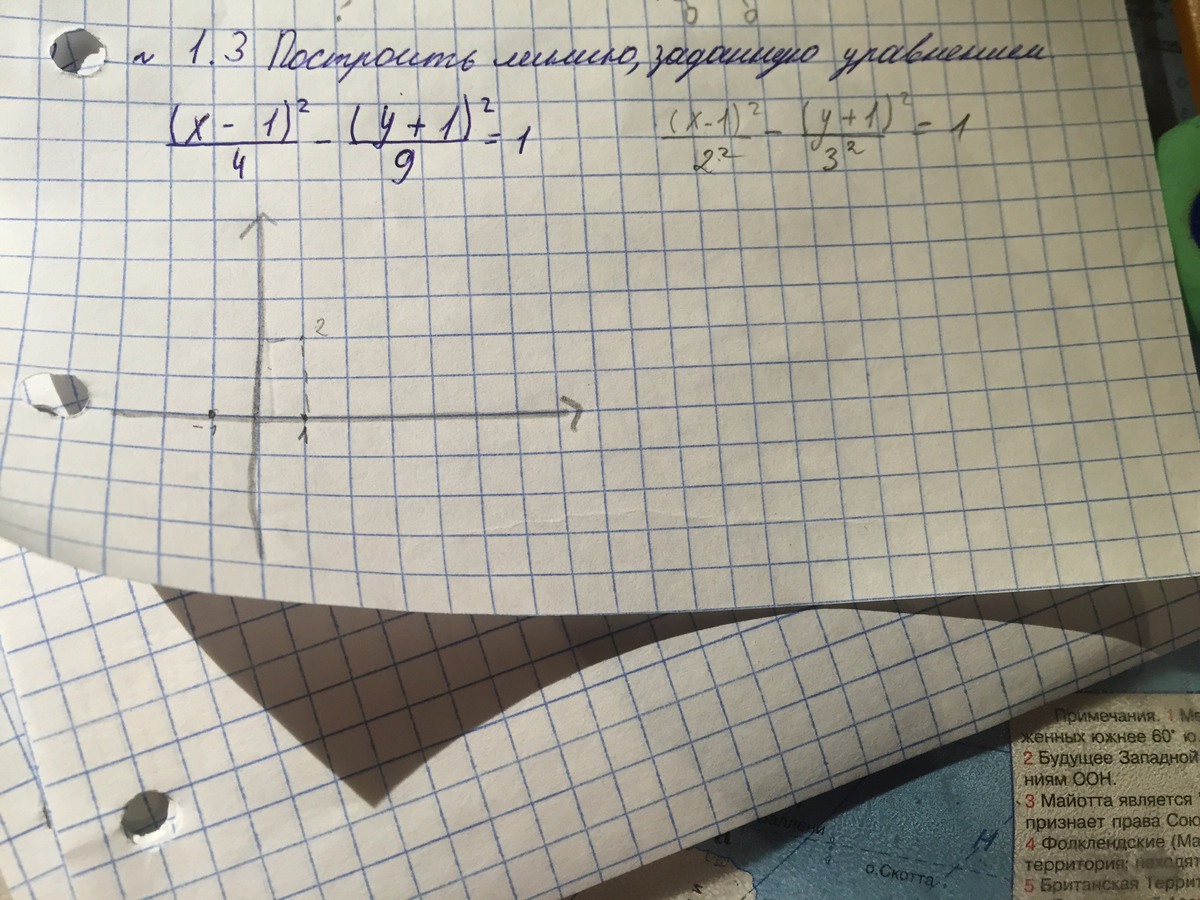 ~ 1.3 Построить линию, заданную уравнением
(x - 1)²/4 - (y + 1)²/9 = 1
(x-1)²/2² - (y+1)²/3² = 1
2
-1 1
Примечания. 1 Ме
женных южнее 60° ю.
2 Будущее Западной
ниям ООН.
3 Майотта является
признает права Сою
4 Фолклендские (Ма
территория; находят
5 Британская Террит
о.Скотта
Н